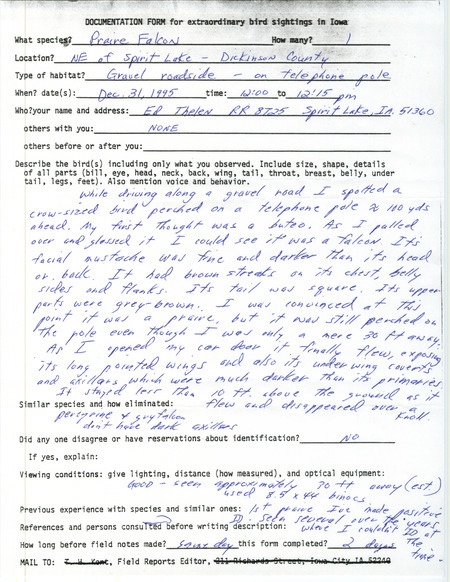 DOCUMENTATION FORM for extraordinary bird sightings in Iowa
What species? Praire Falcon How many? 1
Location? NE of Spirit Lake - Dickinson County
Type of habitat? Gravel roadside - on telephone pole
When? date(s): Dec. 31, 1995 time: 12:00 to 12:15 pm
Who? your name and address: Ed Thelen RR 8725 Spirit Lake, IA. 51360
others with you: NONE
others before or after you:
Describe the bird(s) including only what you observed. Include size, shape, details
of all parts (bill, eye, head, neck, back, wing, tail, throat, breast, belly, under
tail, legs, feet). Also mention voice and behavior.
While driving along a gravel road I spotted a
crow-sized bird perched on a telephone pole ≈ 100 yds
ahead. My first thought was a buteo. As I pulled
over and glassed it I could see it was a falcon. Its
facial mustache was thine and darker than its head
or back. It had brown streaks on its chest, belly
sides and flanks. Its tail was square. Its upper
parts were grey-brown. I was convinced at this
point it was a praire, but it was still perched on
the pole even though I was only a mere 30 ft away.
As I opened my car door it finally flew, exposing
its long pointed wings and also its under wing coverts
and axillars which were much darker than its primaries.
It stayed less than 10 ft above the ground as it
flew and disappeared over a knoll
Similar species and how eliminated:
peregrine & gyrfalcon
don't have dark axillars
Did any one disagree or have reservations about identification? NO
If yes, explain:
Viewing conditions: give lighting, distance (how measured), and optical equipment:
Good - seen approximately 30 ft away (est.)
used 8.5 x 44 binocs.
Previous experience with species and similar ones: 1st praire I've made positive
ID. Seen several over the years
where I couldn't ID at
the time.
References and persons consulted before writing description:
How long before field notes made? same day this form completed? 2 days
MAIL TO: T. H. Kent, Field Reports Editor, 211 Richards Street, Iowa City IA 52240